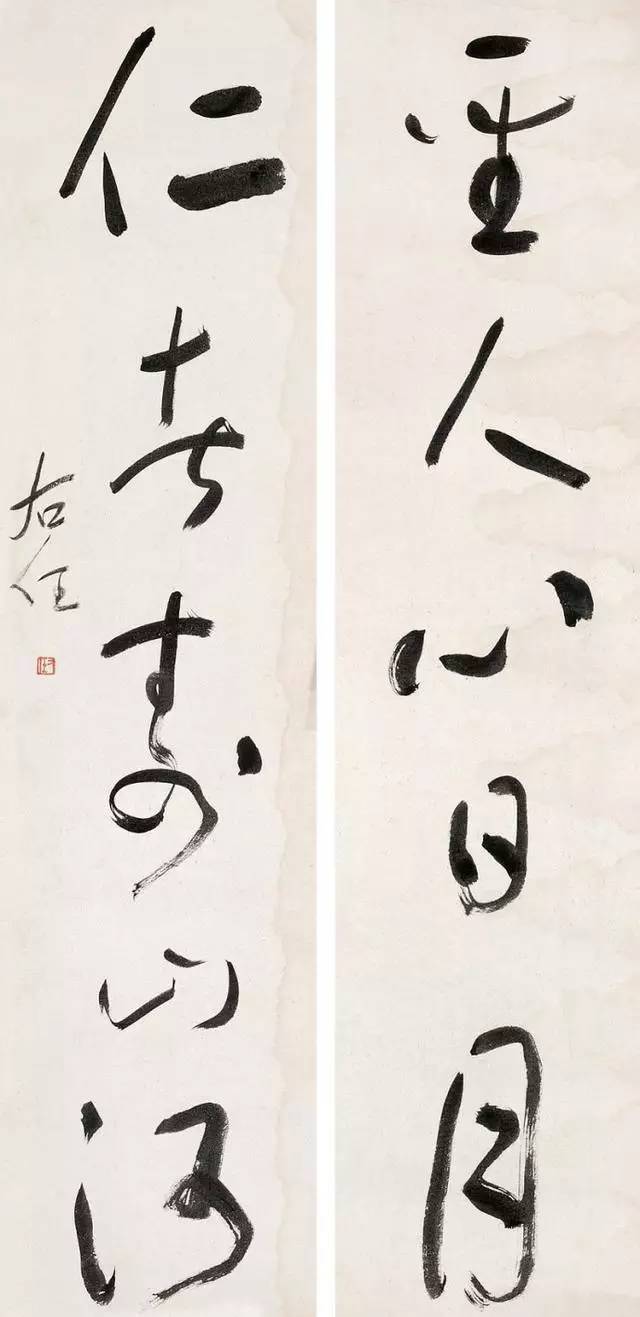 圣人心日月
仁者寿山河
右任